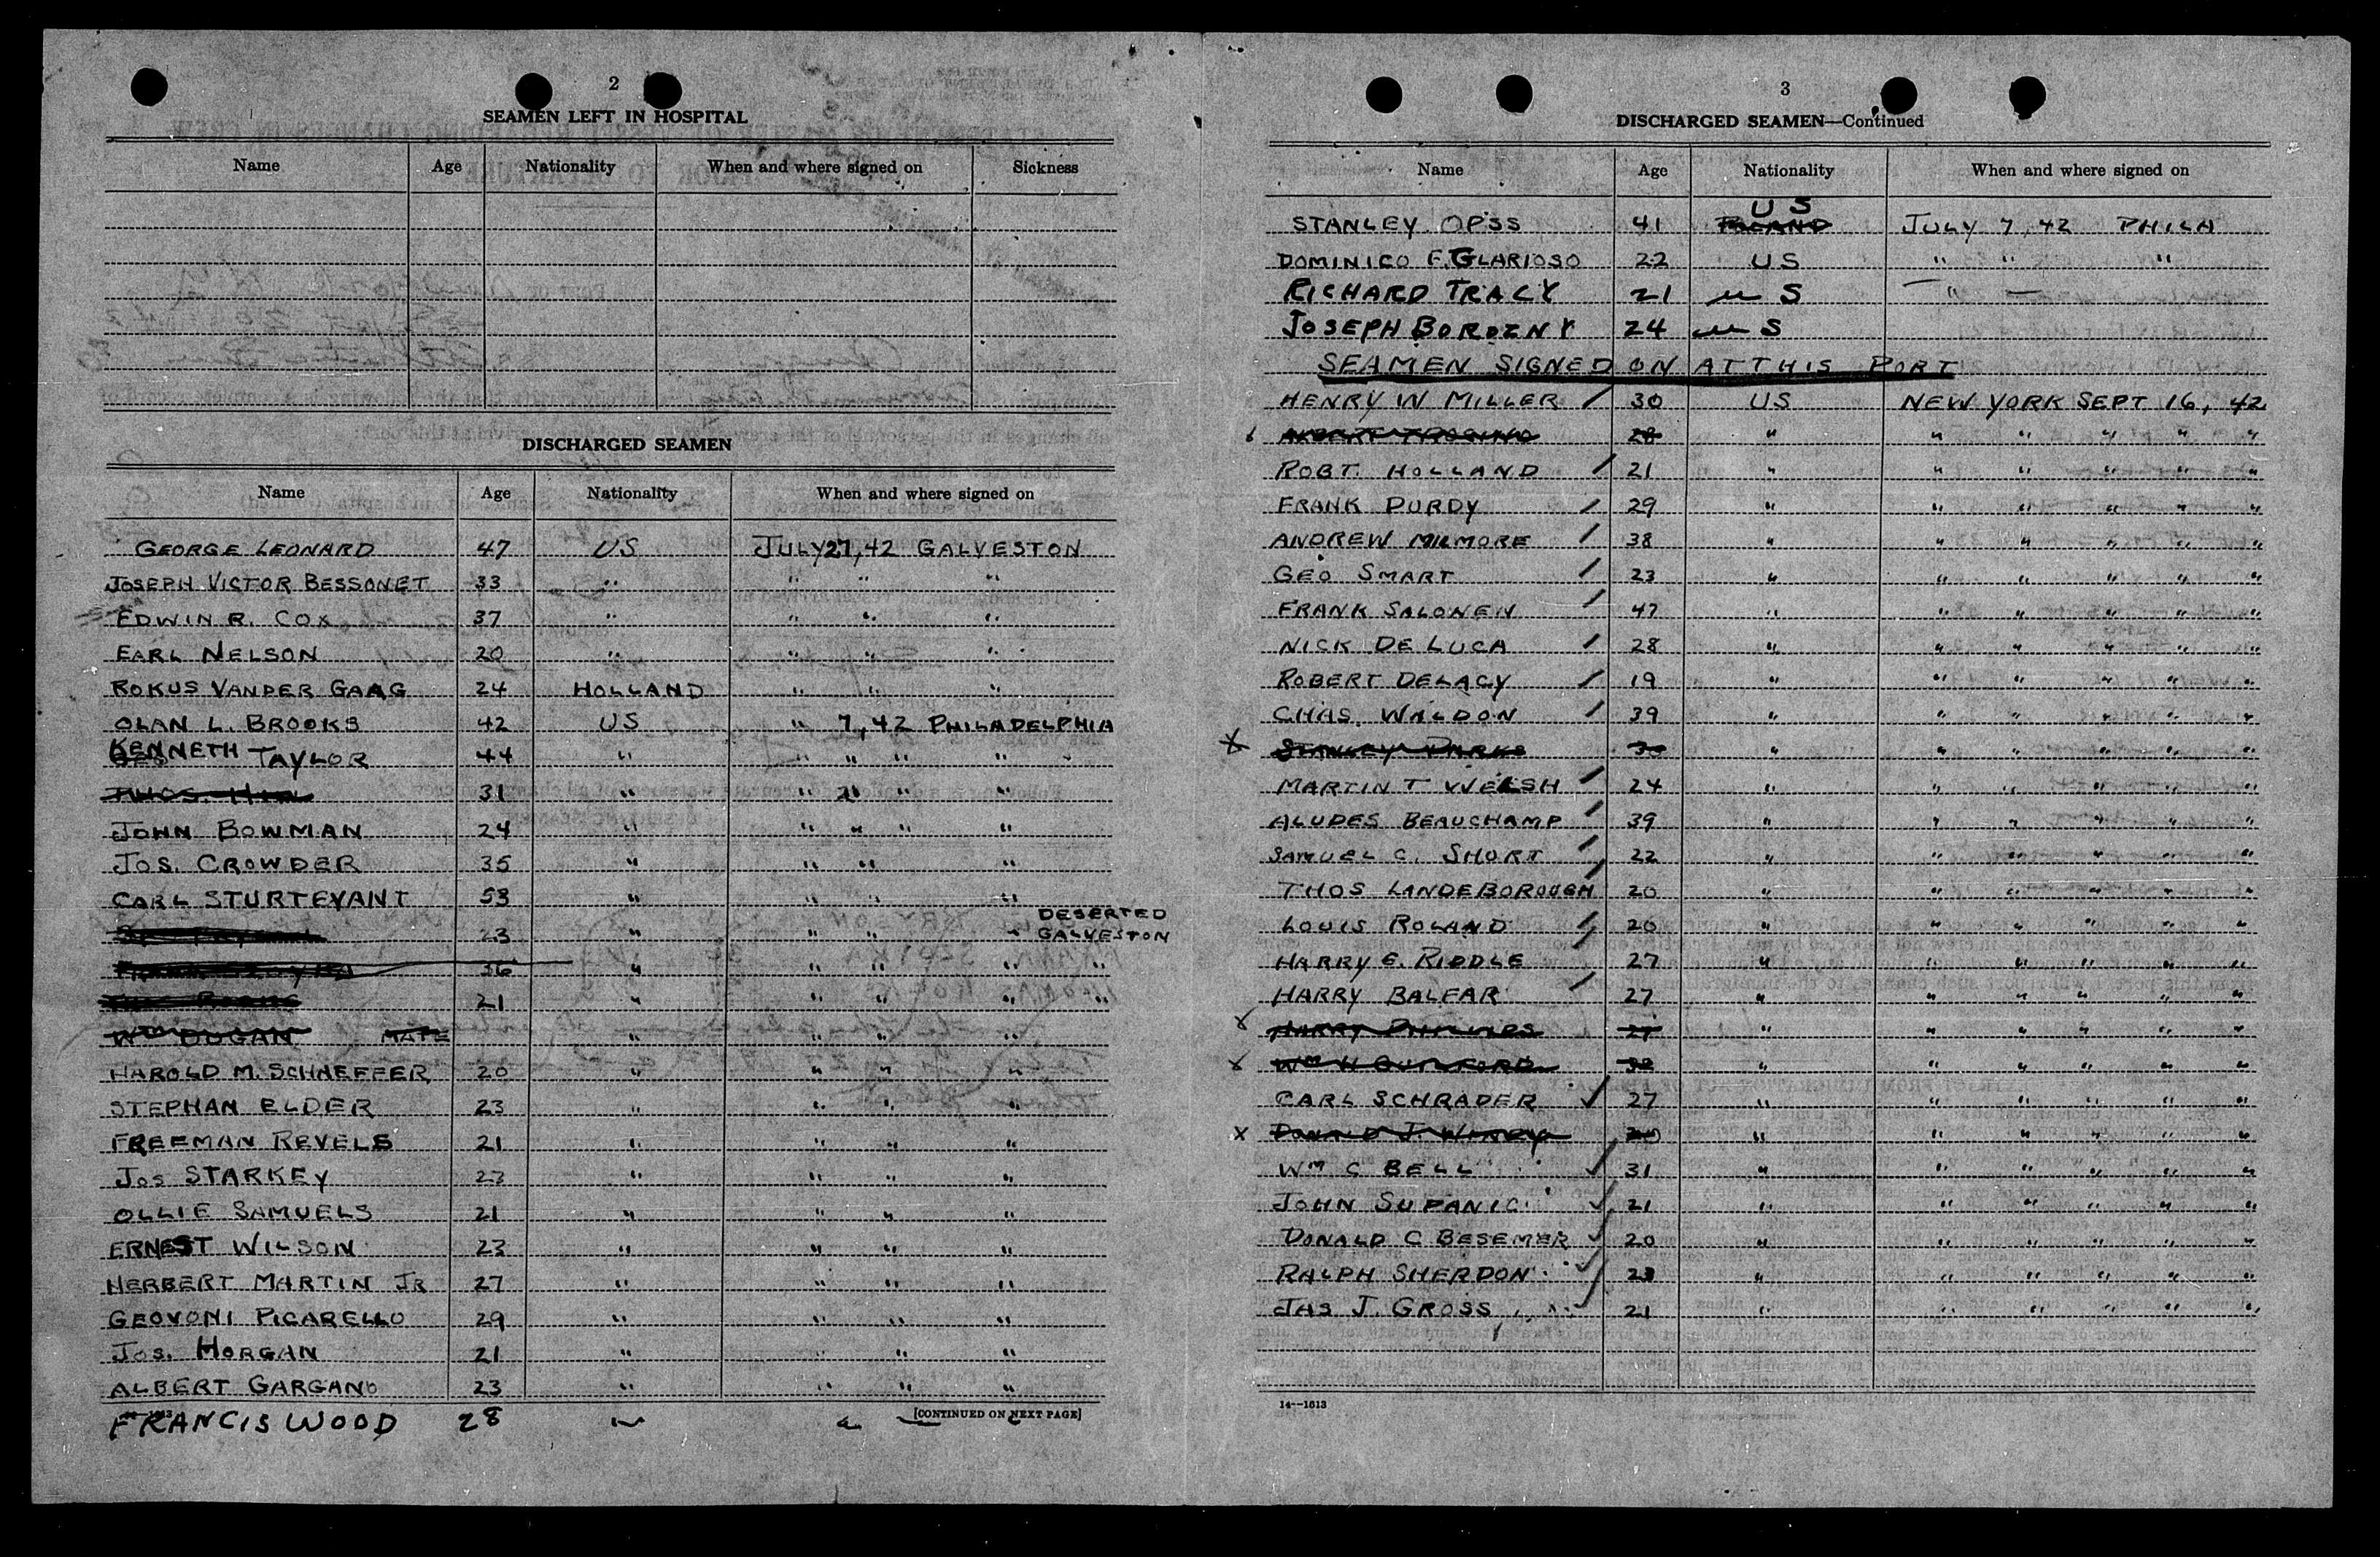 2
SEAMEN LEFT IN HOSPITAL
Name Age Nationality When and where signed on Sickness
DISCHARGED SEAMEN
Name Age Nationality When and where signed on
GEORGE LEONARD 47 US JULY 27, 42 GALVESTON
JOSEPH VICTOR BESSONET 33 " " " "
EDWIN R. COX 37 " " " "
EARL NELSON 20 " " " "
ROKUS VANDER GAAG 24 HOLLAND " " "
OLAN L. BROOKS 42 US " 7, 42 PHILADELPHIA
KENNETH TAYLOR 44 " " " " "
THOS. 31 " " " "
JOHN BOWMAN 24 " " " " "
JOS. CROWDER 35 " " " "
CARL STURTEVANT 53 " " " "
DESERTED
23 " " " " GALVESTON
36 " " " " "
21 " " " " "
WM DUGAN MATE " " " "
HAROLD M. SCHNEFFER 20 " " " "
STEPHAN ELDER 23 " " " "
FREEMAN REVELS 21 " " " "
JOS STARKEY 23 " " " "
OLLIE SAMUELS 21 " " " "
ERNEST WILSON 23 " " " "
HERBERT MARTIN JR 27 " " " "
GEOVONI PICARELLO 29 " " " "
JOS. HORGAN 21 " " " "
ALBERT GARGANO 23 " " " "
[CONTINUED ON NEXT PAGE]
FRANCIS WOOD 28 " "
3
DISCHARGED SEAMEN—Continued
Name Age Nationality When and where signed on
US
STANLEY OPSS 41 POLAND JULY 7, 42 PHILA
DOMINICO F. GLARIOSO 22 US " " "
RICHARD TRACY 21 US — " —
JOSEPH BOROZNY 24 US
SEAMEN SIGNED ON AT THIS PORT
HENRY W MILLER / 30 US NEW YORK SEPT 16, 42
28 " " " " " "
ROBT. HOLLAND / 21 " " " " " "
FRANK PURDY / 29 " " " " " "
ANDREW MILMORE / 38 " " " " " "
GEO SMART / 23 " " " " " "
FRANK SALONEN / 47 " " " " " "
NICK DE LUCA / 28 " " " " " "
ROBERT DELACY / 19 " " " " " "
CHAS. WALDON / 39 " " " " " "
X STANLEY PARKS 30 " " " " " "
MARTIN T WELSH / 24 " " " " " "
ALUDES BEAUCHAMP / 39 " " " " " "
SAMUEL C. SHORT / 22 " " " " " "
THOS LANDEBOROUGH / 20 " " " " " "
LOUIS ROLAND / 20 " " " " " "
HARRY E. RIDDLE 27 " " " " " "
HARRY BALFAR / 27 " " " " " "
X HARRY PHILLIPS 27 " " " " " "
X WM H 32 " " " " " "
CARL SCHRADER ✓ 27 " " " " " "
X DONALD J. 20 " " " " " "
WM C BELL ✓ 31 " " " " " "
JOHN SUPANIC ✓ 21 " " " " " "
DONALD C BESEMER ✓ 20 " " " " " "
RALPH SHERDON ✓ 23 " " " " " "
JAS J. GROSS ✓ 21 " " " " " "
14—1613